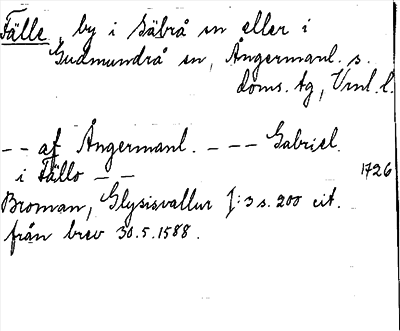 Fälle, by i Säbrå sn eller i
Gudmundrå sn, Ångermanl. s.
doms. tg, Vrnl. l.
-- af Ångermanl. - -- Gabriel
i Fällo -- 1726
Broman, Glysisvallur I:3 s. 200 cit.
från brev 30.5.1588.